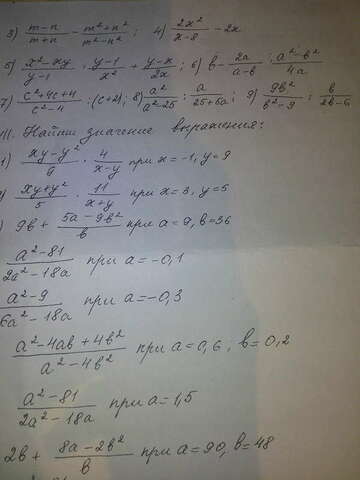 3) (m-n)/(m+n) - (m²+n²)/(m²-n²) ; 4) 2x²/(x-8) - 2x
5) (x²-xy)/(y-1) · (y-1)/x² + (y-x)/2x ; 6) в - 2a/(a-в) · (a²-в²)/4a
7) (c²+4c+4)/(c²-4) : (c+2) ; 8) a²/(a²-25) : a/(25+5a) ; 9) 9в²/(в²-9) : в/(2в-6)
III. Найти значение выражения:
1) (xy-y²)/9 · 4/(x-y) при x=-1, y=9
) (xy+y²)/5 · 11/(x+y) при x=3, y=5
) 9в + (5a-9в²)/в при a=9, в=36
(a²-81)/(2a²-18a) при a=-0,1
(a²-9)/(6a²-18a) при a=-0,3
(a²-4aв+4в²)/(a²-4в²) при a=0,6, в=0,2
(a²-81)/(2a²-18a) при a=1,5
2в + (8a-2в²)/в при a=90, в=48